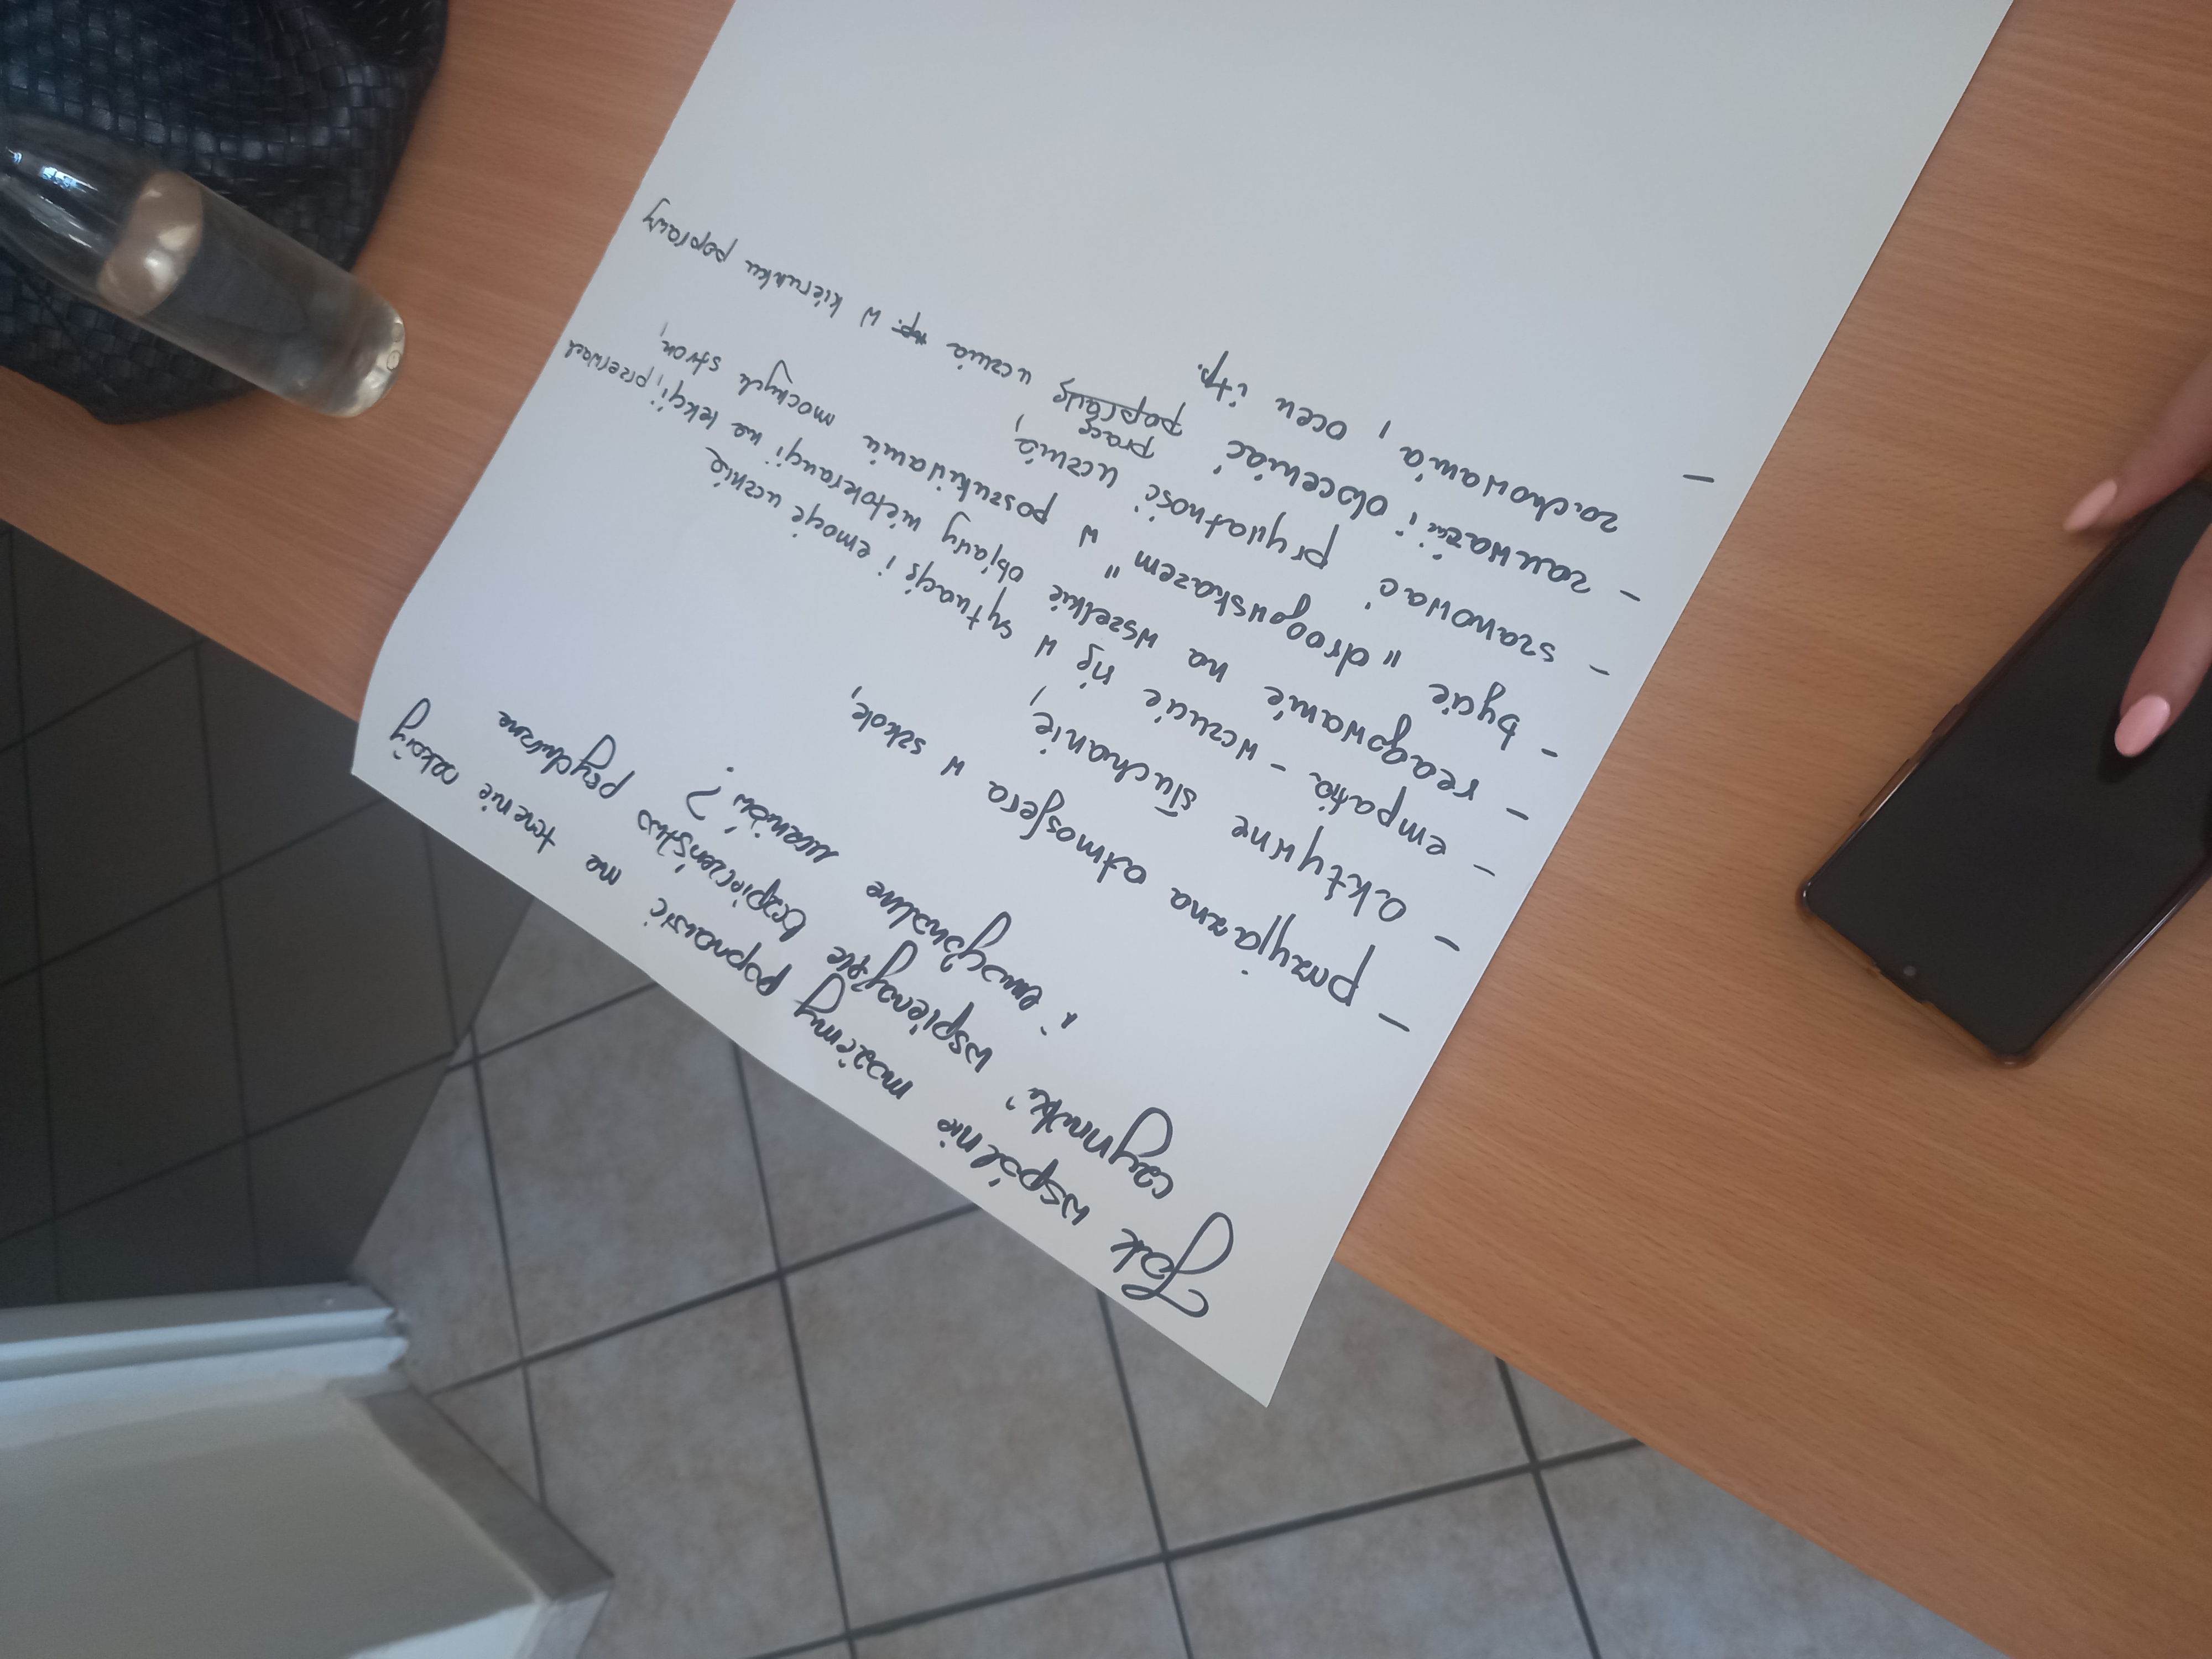 Jak wspólnie możemy poprawić na terenie szkoły
czynniki wspierające bezpieczeństwo psychiczne
i emocjonalne uczniów?
- przyjazna atmosfera w szkole,
- aktywne słuchanie,
- empatia - wczucie się w sytuację i emocje ucznia
- reagowanie na wszelkie objawy nietolerancji na lekcji, przerwach
- bycie "drogowskazem" w poszukiwaniu mocnych stron,
- szanować prywatność ucznia,
pracę
- zauważać i doceniać poprawę ucznia np. w kierunku poprawy
zachowania, ocen itp.
-